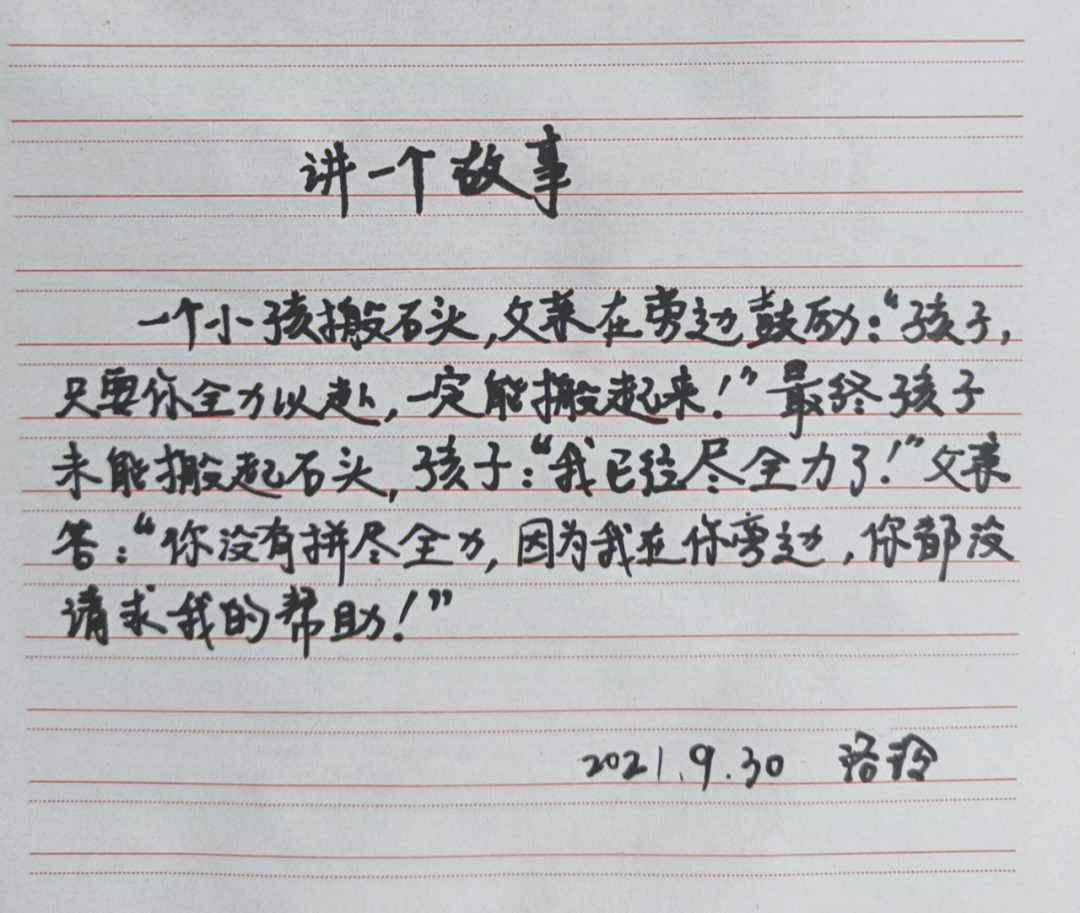 讲一个故事
一个小孩搬石头,父亲在旁边鼓励:“孩子,
只要你全力以赴,一定能搬起来!”最终孩子
未能搬起石头,孩子:“我已经尽全力了!”父亲
答:“你没有拼尽全力,因为我在你旁边,你都没
请求我的帮助!”
2021.9.30 洛玲